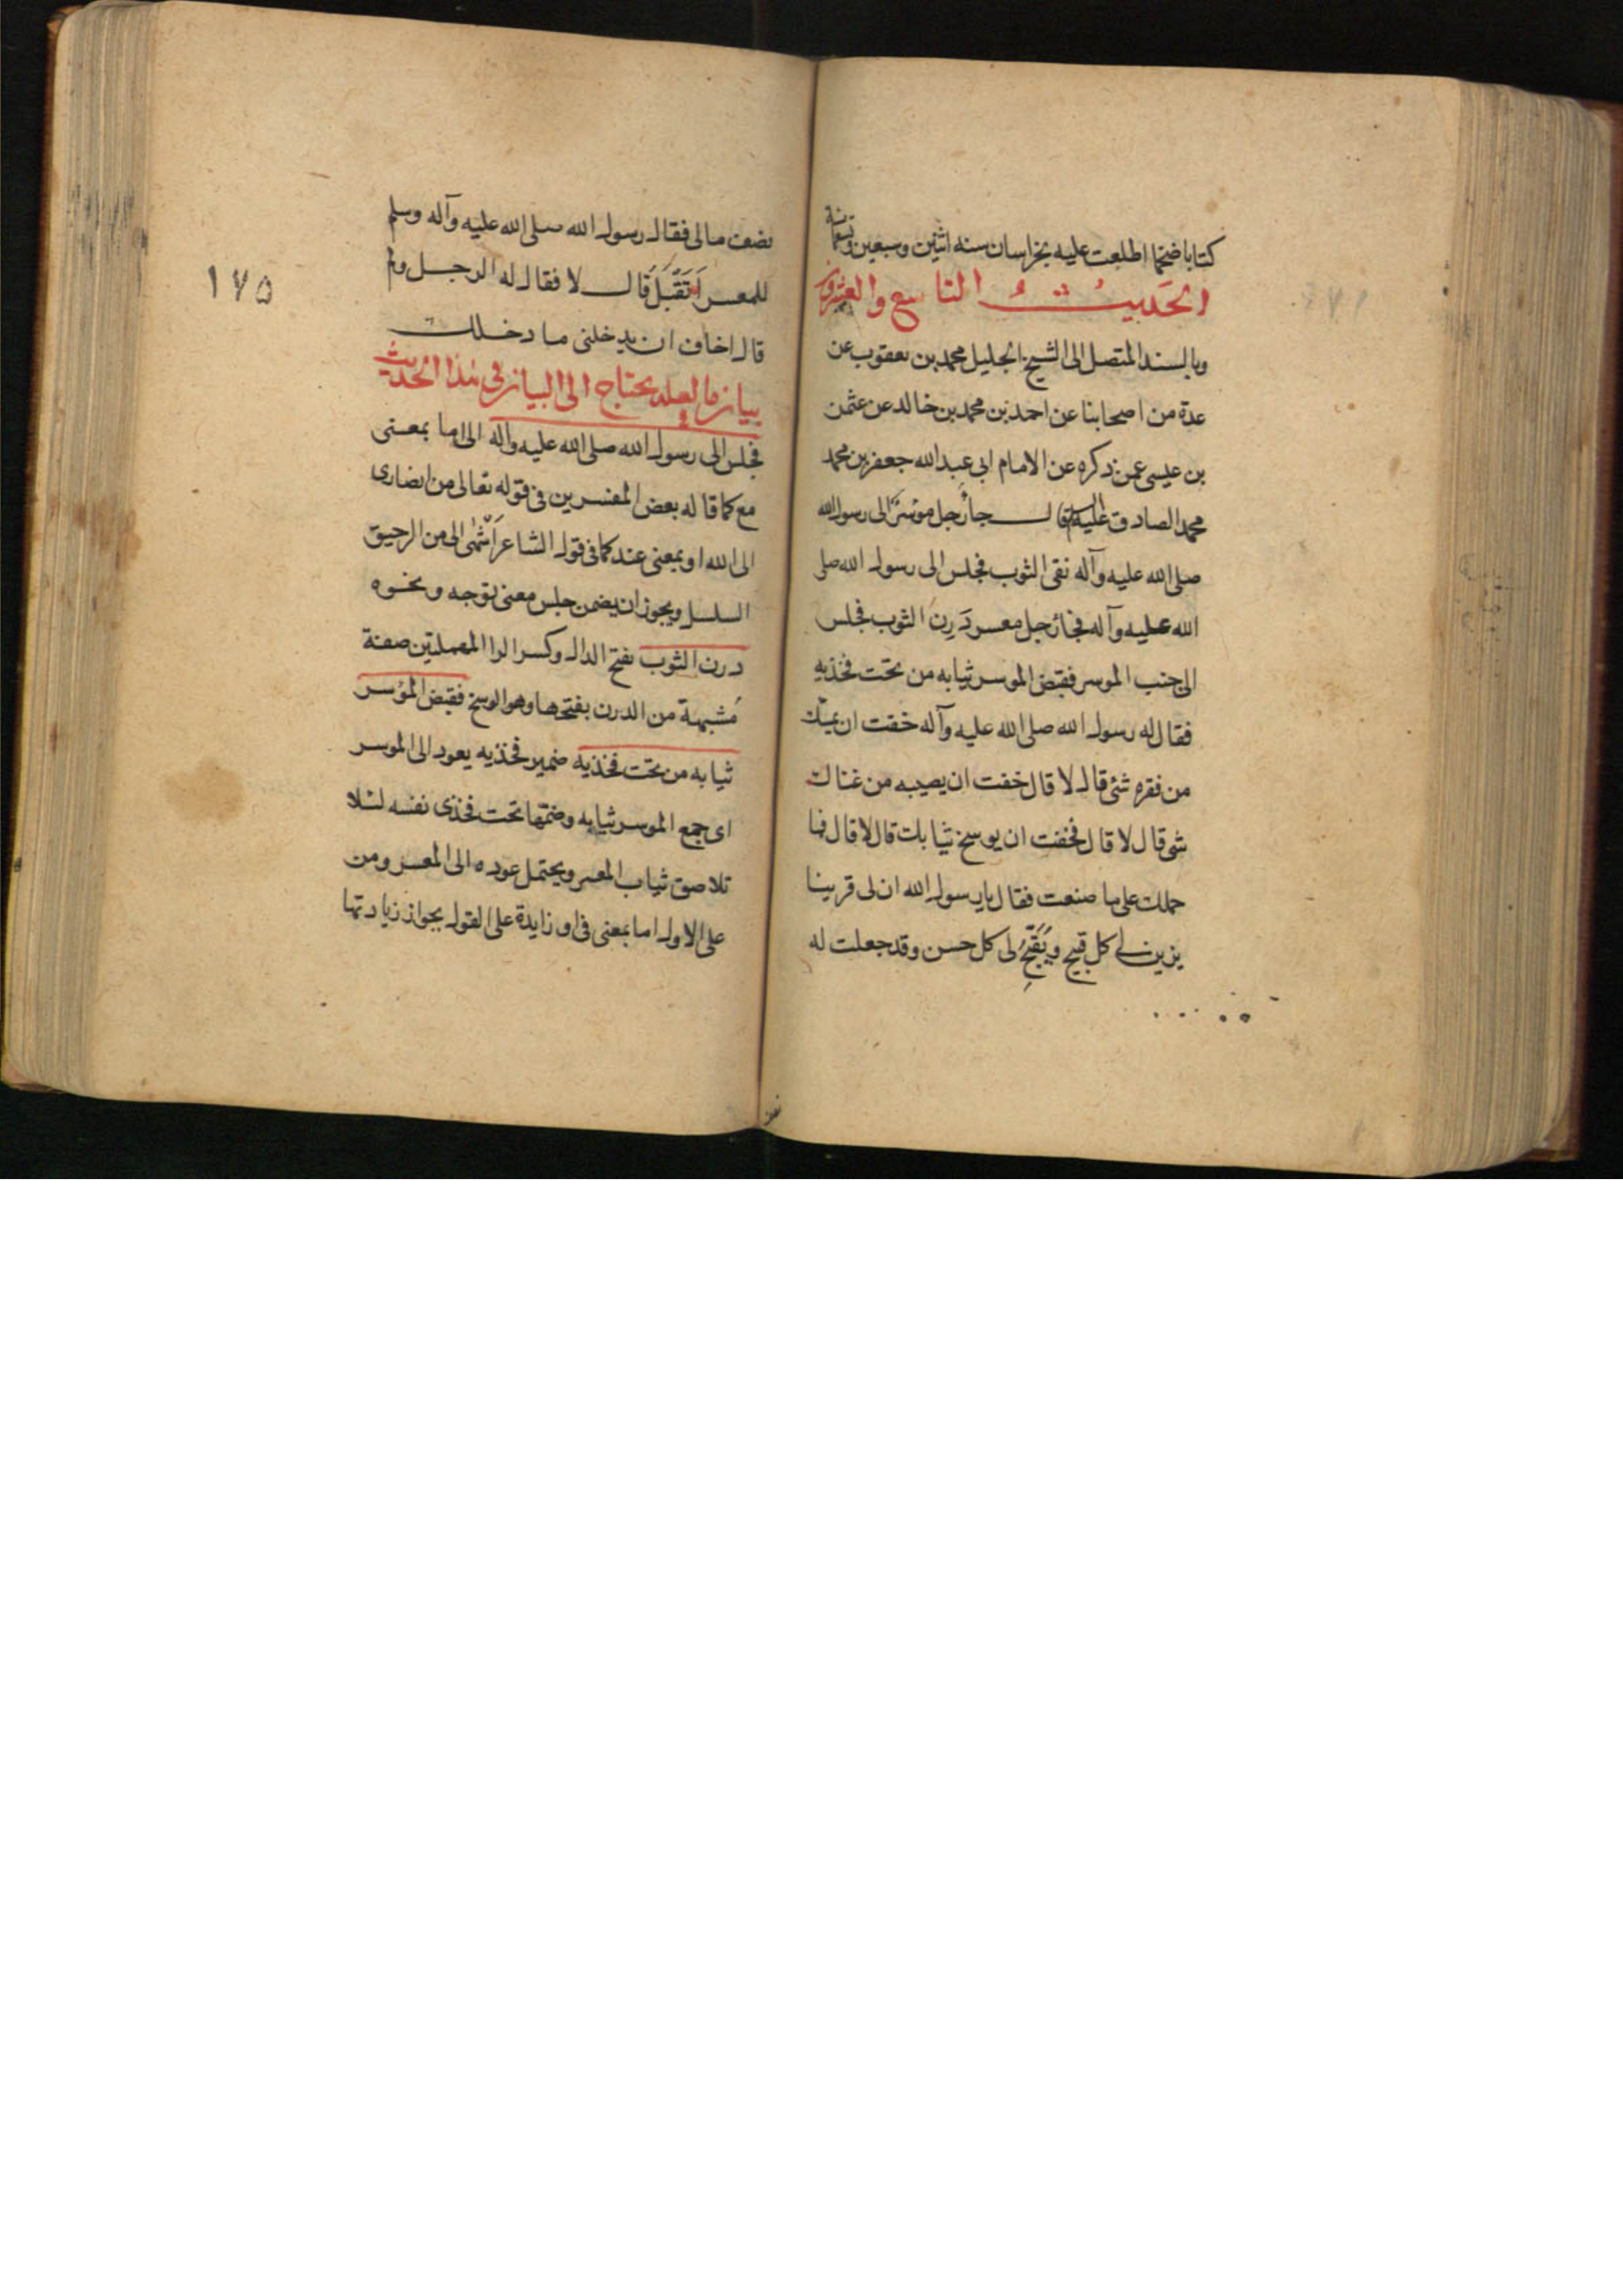 كتابا ضخما اطلعت عليه بخراسان سنه اثنين وسبعين وتسعمائة
الحديث التاسع والعشرون
وبالسند المتصل الى الشيخ الجليل محمد بن يعقوب عن
عدة من اصحابنا عن احمد بن محمد بن خالد عن عثمن
بن عيسى عمن ذكره عن الامام ابى عبد الله جعفر بن محمد
محمد الصادق عليه السلام قال جاء رجل موسر الى رسول الله
صلى الله عليه وآله نقى الثوب فجلس الى رسول الله صلى
الله عليه وآله فجاء رجل معسر دَرِن الثوب فجلس
الى جنب الموسر فقبض الموسر ثيابه من تحت فخذيه
فقال له رسول الله صلى الله عليه وآله خفت ان يمسّك
من فقره شئ قال لا قال خفت ان يصيبه من غناك
شى قال لا قال فخفت ان يوسخ ثيابك قال لا قال فما
حملك على ما صنعت فقال يا رسول الله ان لى قرينا
يزين لى كل قبيح ويُقَبِّحُ لى كل حسن وقد جعلت له
نصف
نصف مالى فقال رسول الله صلى الله عليه وآله وسلم
للمعسر اَتَقْبَلُ قال لا فقال له الرجل ولم
قال اخاف ان يدخلنى ما دخلك
١٧٥
بيان ما لعله يحتاج الى البيان فى هذا الحديث
فجلس الى رسول الله صلى الله عليه وآله الى اما بمعنى
مع كما قاله بعض المفسرين فى قوله تعالى من انصارى
الى الله او بمعنى عند كما فى قول الشاعر اَشْهٰى الى من الرحيق
السلسل ويجوز ان يضمن جلس معنى توجه ونحوه
درن الثوب بفتح الدال وكسر الرا المهملتين صفة
مُشبهة من الدرن بفتحها وهو الوسخ فقبض الموسر
ثيابه من تحت فخذيه ضمير فخذيه يعود الى الموسر
اى جمع الموسر ثيابه وضمّها تحت فخذى نفسه لئلا
تلاصق ثياب المعسر ويحتمل عوده الى المعسر ومن
على الاول اما بمعنى فى او زايدة على القول بجواز زيادتها